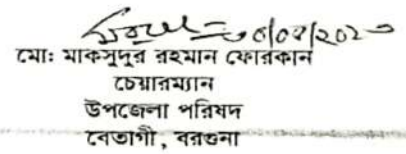 মো: মাকসুদুর রহমান ফোরকান
চেয়ারম্যান
উপজেলা পরিষদ
বেতাগী, বরগুনা